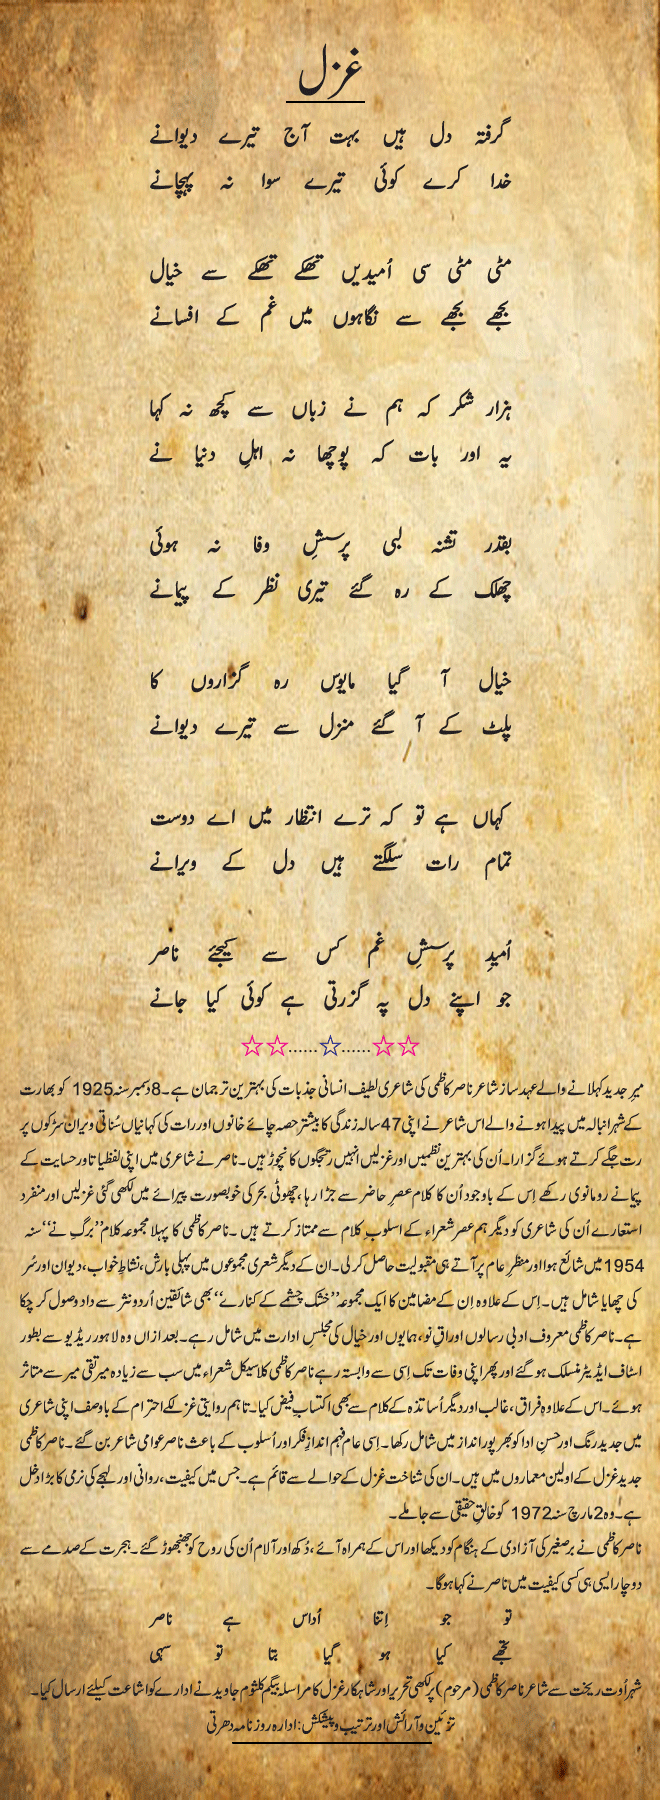 غزل
گرفتہ دل ہیں بہت آج تیرے دیوانے
خدا کرے کوئی تیرے سوا نہ پہچانے
مٹی مٹی سی اُمیدیں تھکے تھکے سے خیال
بجھے بجھے سے نگاہوں میں غم کے افسانے
ہزار شکر کہ ہم نے زباں سے کچھ نہ کہا
یہ اور بات کہ پوچھا نہ اہلِ دنیا نے
بقدر تشنہ لبی پرسشِ وفا نہ ہوئی
چھلک کے رہ گئے تیری نظر کے پیمانے
خیال آ گیا مایوس رہ گزاروں کا
پلٹ کے آ گئے منزل سے تیرے دیوانے
کہاں ہے تو کہ ترے انتظار میں اے دوست
تمام رات سلگتے ہیں دل کے ویرانے
اُمیدِ پرسشِ غم کس سے کیجئے ناصر
جو اپنے دل پہ گزرتی ہے کوئی کیا جانے
میرِ جدید کہلانے والے عہد ساز شاعر ناصر کاظمی کی شاعری لطیف انسانی جذبات کی بہترین ترجمان ہے۔ 8 دسمبر سنہ 1925 کو بھارت
کے شہر انبالہ میں پیدا ہونے والے اس شاعر نے اپنی 47 سالہ زندگی کا بیشتر حصہ چائے خانوں اور رات کی کہانیاں سُناتی ویران سڑکوں پر
رت جگے کرتے ہوئے گزارا۔ اُن کی بہترین نظمیں اور غزلیں انہیں رتجگوں کا نچوڑ ہیں۔ ناصر نے شاعری میں اپنی لفظیات اور حسایت کے
پیمانے رومانوی رکھے اِس کے باوجود اُن کا کلام عصرِ حاضر سے جڑا رہا، چھوٹی بحر کی خوبصورت پیرائے میں لکھی گئی غزلیں اور منفرد
استعارے اُن کی شاعری کو دیگر ہم عصر شعراء کے اسلوبِ کلام سے ممتاز کرتے ہیں ۔ ناصر کاظمی کا پہلا مجموعہ کلام ’’برگِ نے‘‘ سنہ
1954 میں شائع ہوا اور منظرِ عام پر آتے ہی مقبولیت حاصل کر لی۔ ان کے دیگر شعری مجموعوں میں پہلی بارش، نشاطِ خواب، دیوان اور سُر
کی چھایا شامل ہیں۔ اِس کے علاوہ اِن کے مضامین کا ایک مجموعہ ’’خشک چشمے کے کنارے‘‘ بھی شائقین اُردو نثر سے داد وصول کر چکا
ہے۔ ناصر کاظمی معروف ادبی رسالوں اوراقِ نو، ہمایوں اور خیال کی مجلسِ ادارت میں شامل رہے۔ بعد ازاں وہ لاہور ریڈیو سے بطور
اسٹاف ایڈیٹر منسلک ہو گئے اور پھر اپنی وفات تک اِسی سے وابستہ رہے ناصر کاظمی کلاسیکل شعراء میں سب سے زیادہ میر تقی میر سے متاثر
ہوئے۔ اس کے علاوہ فراق، غالب اور دیگر اُساتذہ کے کلام سے بھی اکتسابِ فیض کیا۔ تاہم روایتی غزل کے احترام کے باوصف اپنی شاعری
میں جدید رنگ اور حسنِ ادا کو بھرپور انداز میں شامل رکھا۔ اِسی عام فہم اندازِ فکر اور اُسلوب کے باعث ناصر عوامی شاعر بن گئے۔ ناصر کاظمی
جدید غزل کے اولین معماروں میں ہیں۔ ان کی شناخت غزل کے حوالے سے قائم ہے۔ جس میں کیفیت، روانی اور لہجے کی نرمی کا بڑا دخل
ہے۔ وہ 2 مارچ سنہ 1972 کو خالقِ حقیقی سے جا ملے۔
ناصر کاظمی نے برصغیر کی آزادی کے ہنگام کو دیکھا اور اس کے ہمراہ آئے ، دُکھ اور آلام اُن کی روح کو جھنجھوڑ گئے ۔ ہجرت کے صدمے سے
دوچار ایسی ہی کسی کیفیت میں ناصر نے کہا ہو گا۔
تو جو اِتنا اُداس ہے ناصر
تجھے کیا ہو گیا بتا تو سہی
شہر اُوت ریخت سے شاعر ناصر کاظمی (مرحوم) پر لکھی تحریر اور شاہکار غزل کا مراسلہ بیگم کلثوم جاوید نے ادارے کو اشاعت کیلئے ارسال کیا۔
تزئین و آرائش اور ترتیب و پیشکش: ادارہ روزنامہ دھرتی